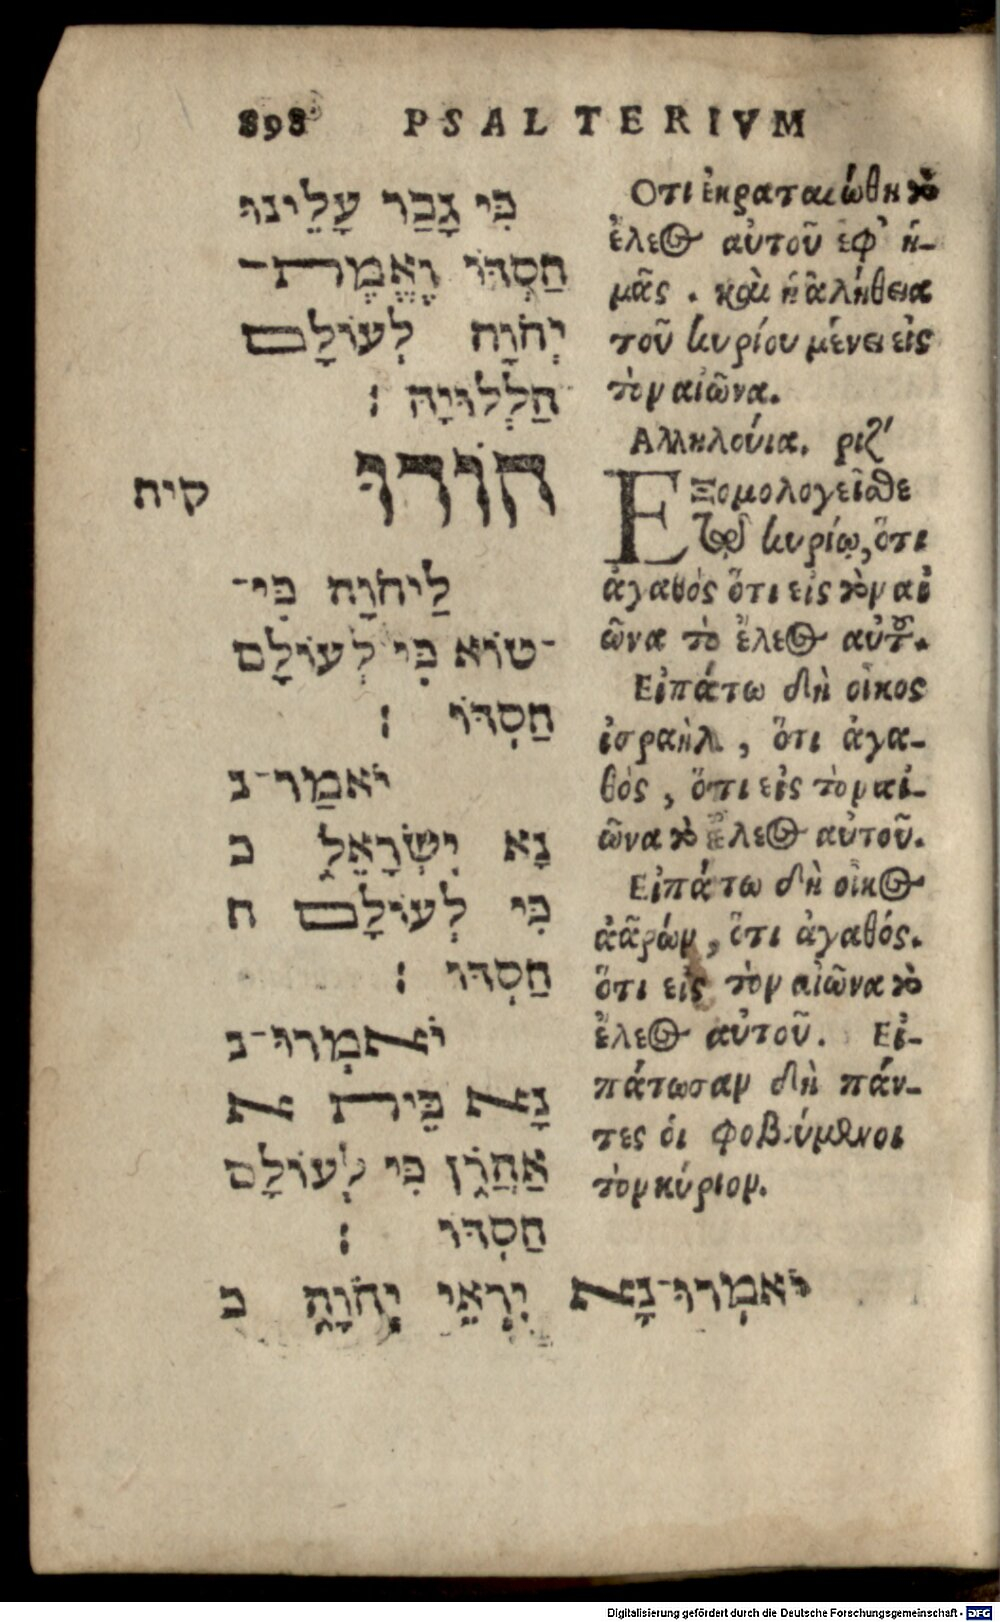 898 PSALTERIVM
כִּי גָבַר עָלֵינוּ
חַסְדּוֹ וֶאֱמֶת־
יְהֹוָה לְעוֹלָם
הַלְלוּיָהּ ׃
קיח
הוֹדוּ
לַיהֹוָה כִּי־
־טוֹא כִּי לְעוֹלָם
חַסְדּוֹ ׃
יֹאמַר־נ
נָא יִשְׂרָאֵל כ
כִּי לְעוֹלָם ח
חַסְדּוֹ ׃
יֹאמְרוּ־נ
נָא בֵּית א
אַהֲרֹן כִּי לְעוֹלָם
חַסְדּוֹ ׃
יֹאמְרוּ־נָא יִרְאֵי יְהֹוָה כ
Οτι ἐκραταιώθη τὸ
ἔλεος αὐτοῦ ἐφ' ἡ-
μᾶς . καὶ ἡ ἀλήθεια
τοῦ κυρίου μένει εἰς
τὸν αἰῶνα.
Αλληλούια. ριζ'
ΕΞομολογεῖσθε
τῷ κυρίῳ, ὅτι
ἀγαθός ὅτι εἰς τὸν αἰ
ῶνα τὸ ἔλεος αὐτοῦ.
Εἰπάτω δὴ οἶκος
ἰσραὴλ , ὅτι ἀγα-
θός , ὅτι εἰς τὸν αἰ-
ῶνα τὸ ἔλεος αὐτοῦ.
Εἰπάτω δὴ οἶκος
ἀαρών , ὅτι ἀγαθός.
ὅτι εἰς τὸν αἰῶνα τὸ
ἔλεος αὐτοῦ. Εἰ-
πάτωσαν δὴ πάν-
τες οἱ φοβούμενοι
τὸν κύριον.
Digitalisierung gefördert durch die Deutsche Forschungsgemeinschaft - DFG